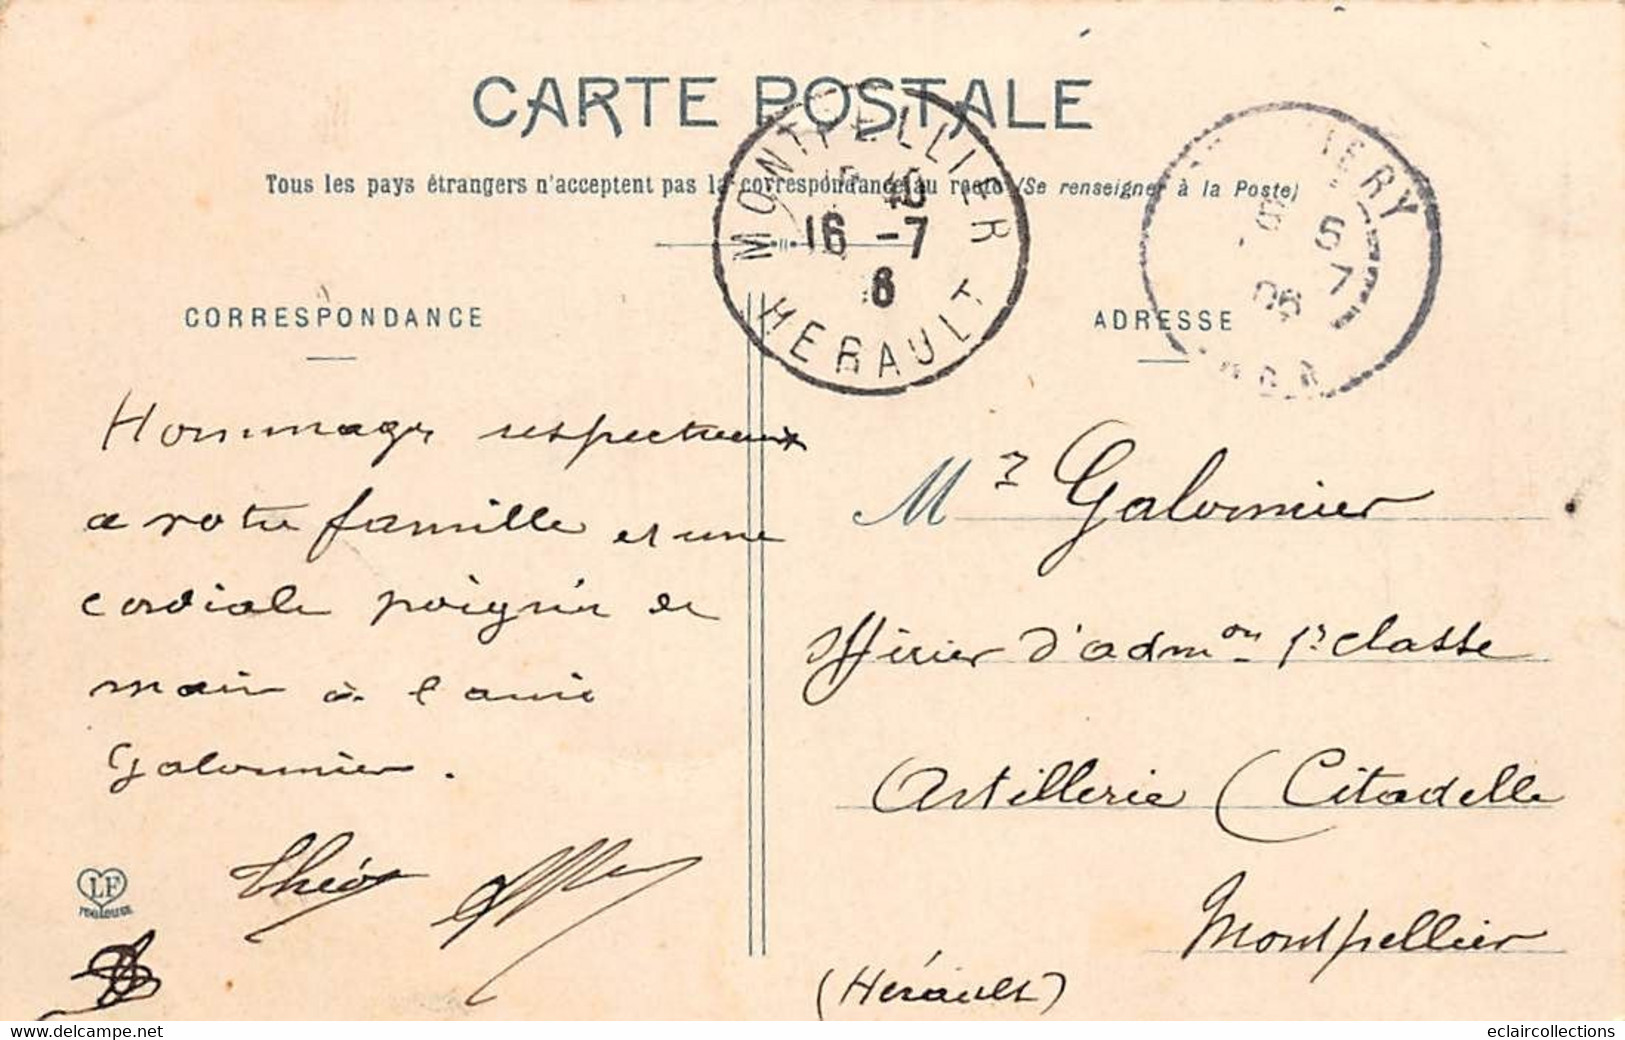 CARTE POSTALE
Tous les pays étrangers n'acceptent pas la correspondance au recto (Se renseigner à la Poste)
MONTPELLIER
10
16 -7
6
HERAULT
IERY
5
7
06
CORRESPONDANCE
ADRESSE
Hommages respectueux
a votre famille et une
cordiale poignée de
main à l'ami
Galonnier.
Théo
LF
Toulouse
Mr Galonnier
Officier d'admon 1re classe
Artillerie (Citadelle
Montpellier
(Hérault)
eclaircollections